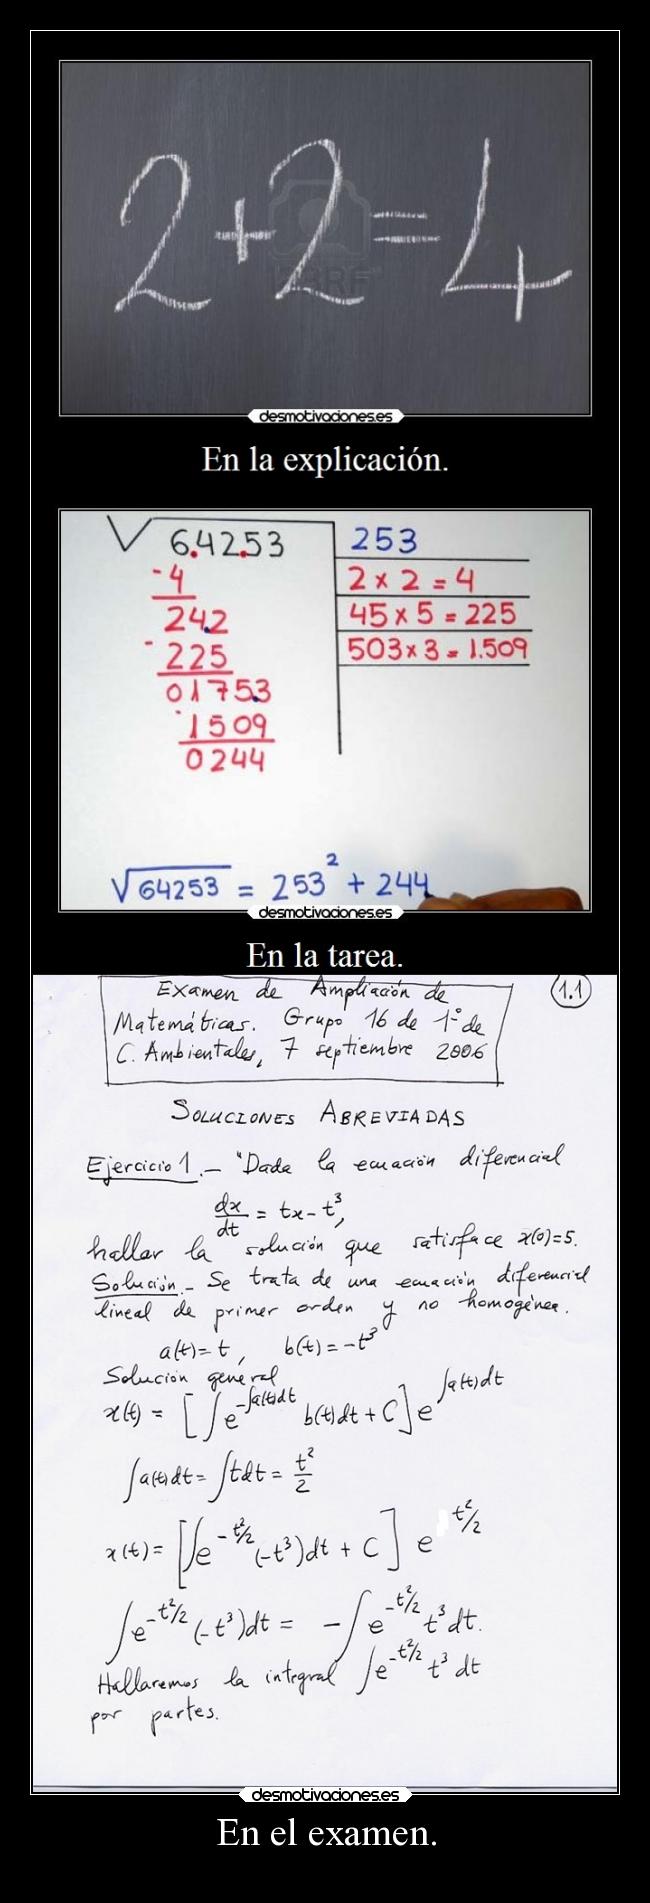 2+2=4
desmotivaciones.es
En la explicación.
√ 6.42.53 253
-4 2 x 2 = 4
242 45 x 5 = 225
-225 503 x 3 = 1.509
01753
-1509
0244
√64253 = 253² + 244
desmotivaciones.es
En la tarea.
Examen de Ampliación de 1.1
Matemáticas. Grupo 16 de 1º de
C. Ambientales, 7 septiembre 2006
SOLUCIONES ABREVIADAS
Ejercicio 1.- "Dada la ecuación diferencial
dx/dt = tx - t³,
hallar la solución que satisface x(0)=5.
Solución.- Se trata de una ecuación diferencial
lineal de primer orden y no homogénea.
a(t)=t, b(t)=-t³
Solución general
x(t) = [∫e^(-∫a(t)dt) b(t)dt + C] e^(∫a(t)dt)
∫a(t)dt = ∫tdt = t²/2
x(t) = [∫e^(-t²/2) (-t³)dt + C] e^(t²/2)
∫e^(-t²/2) (-t³)dt = -∫e^(-t²/2) t³dt.
Hallaremos la integral ∫e^(-t²/2) t³ dt
por partes.
desmotivaciones.es
En el examen.